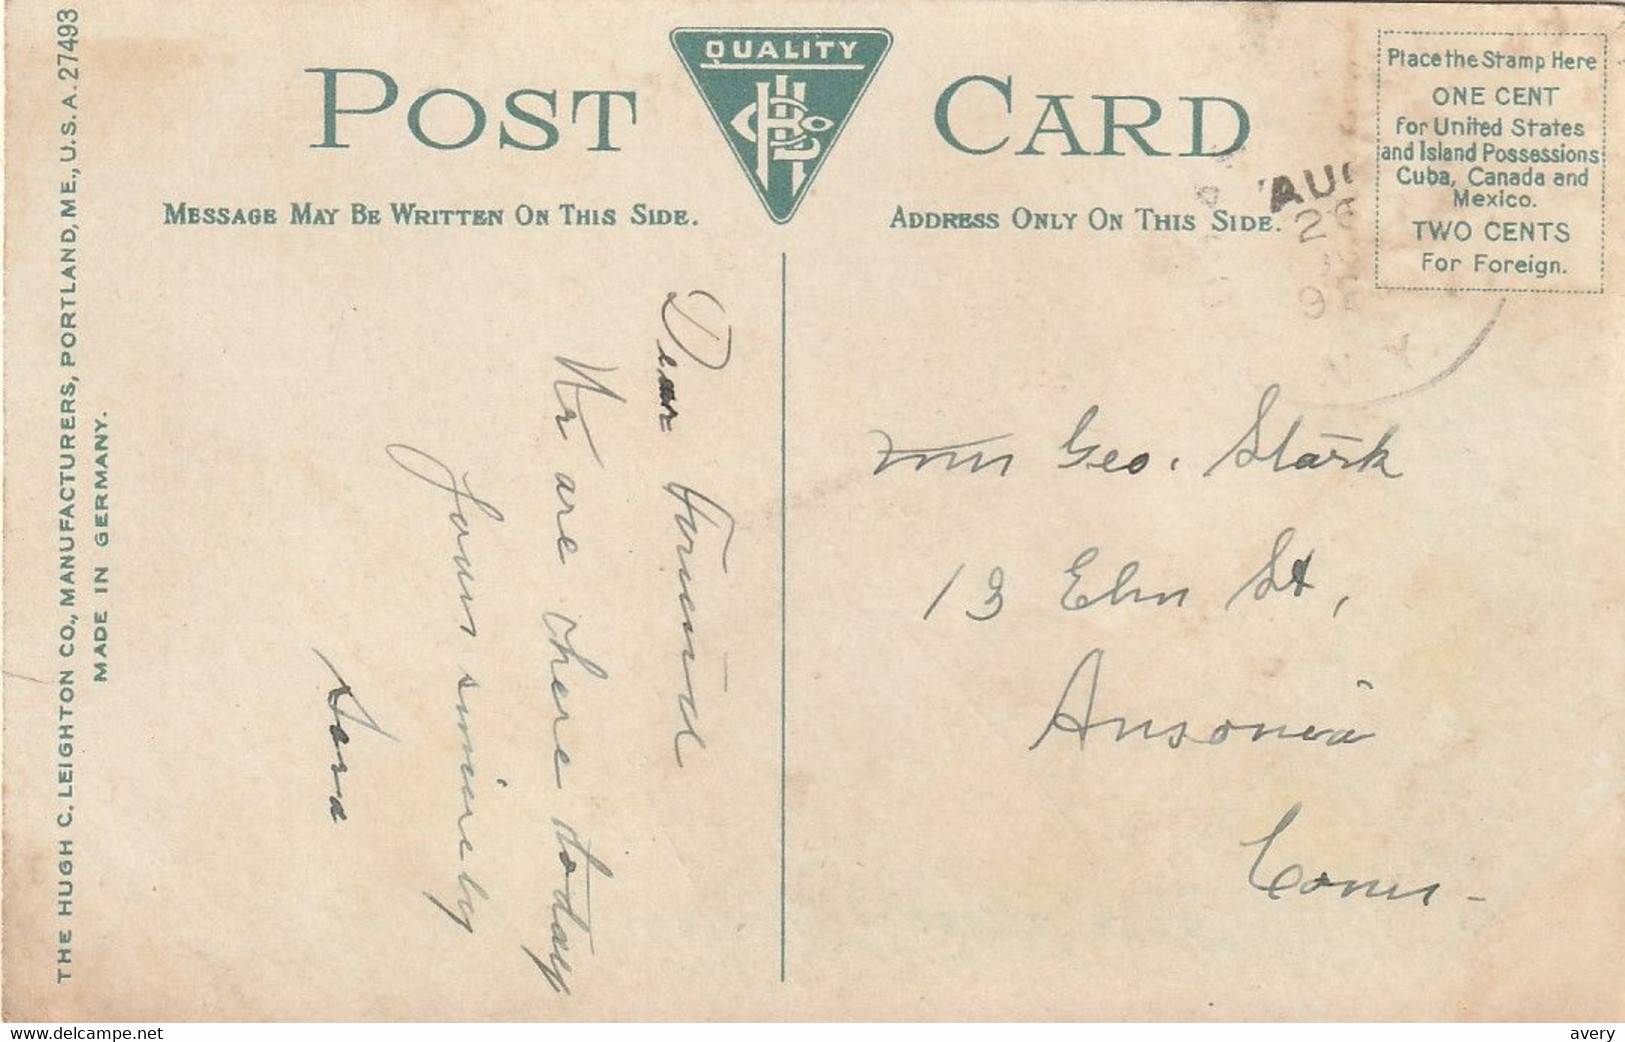 THE HUGH C. LEIGHTON CO., MANUFACTURERS, PORTLAND, ME., U.S.A. 27493
MADE IN GERMANY.
POST CARD
QUALITY
MESSAGE MAY BE WRITTEN ON THIS SIDE.
ADDRESS ONLY ON THIS SIDE.
Place the Stamp Here
ONE CENT
for United States
and Island Possessions
Cuba, Canada and
Mexico.
TWO CENTS
For Foreign.
AUG
26
N.Y.
Dear friend
We are here today
yours sincerely
Geo. Stark
13 Elm St,
Ansonia
Conn-
www.delcampe.net
avery